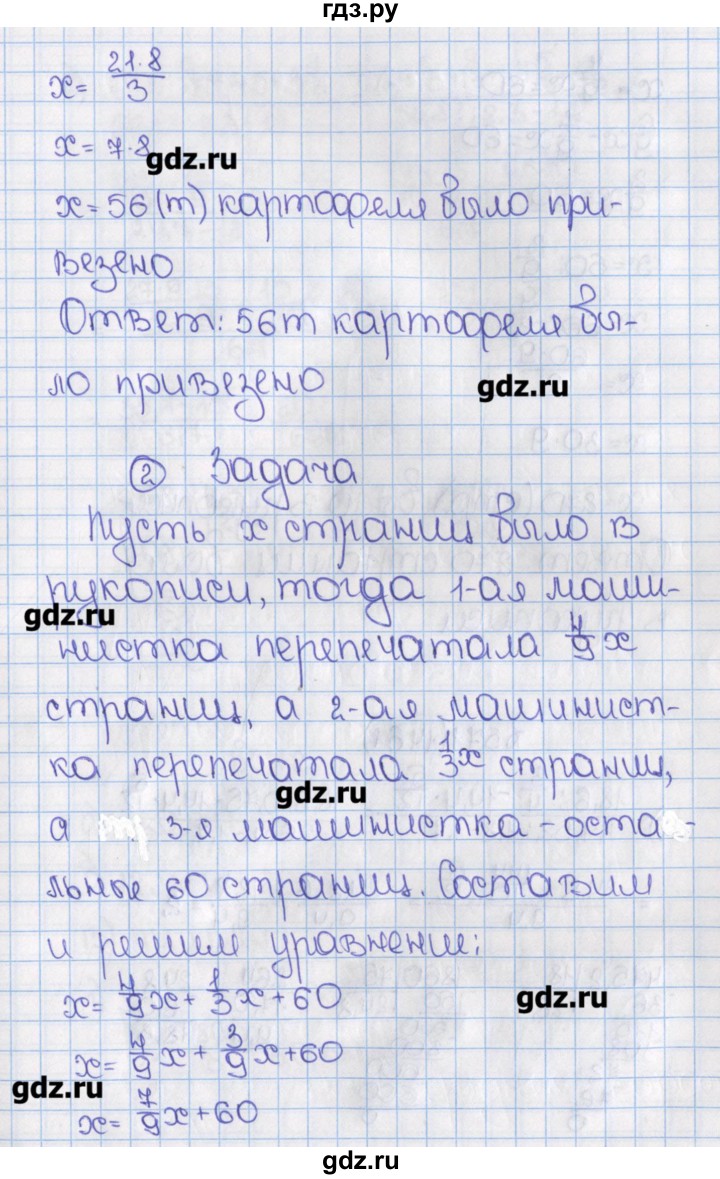 гдз.ру
x = 21·8/3
x = 7·8
gdz.ru
x = 56 (т) картофеля было при-
везено
Ответ: 56т картофеля бы-
ло привезено
gdz.ru
② Задача
Пусть x страниц было в
рукописи, тогда 1-ая маши-
gdz.ru
нистка перепечатала 4/9 x
страниц, а 2-ая машинист-
ка перепечатала 1/3 x страниц,
gdz.ru
а 3-я машинистка - оста-
льные 60 страниц. Составим
и решим уравнение:
x = 4/9 x + 1/3 x + 60
gdz.ru
x = 4/9 x + 3/9 x + 60
gdz.ru
x = 7/9 x + 60
gdz.ru